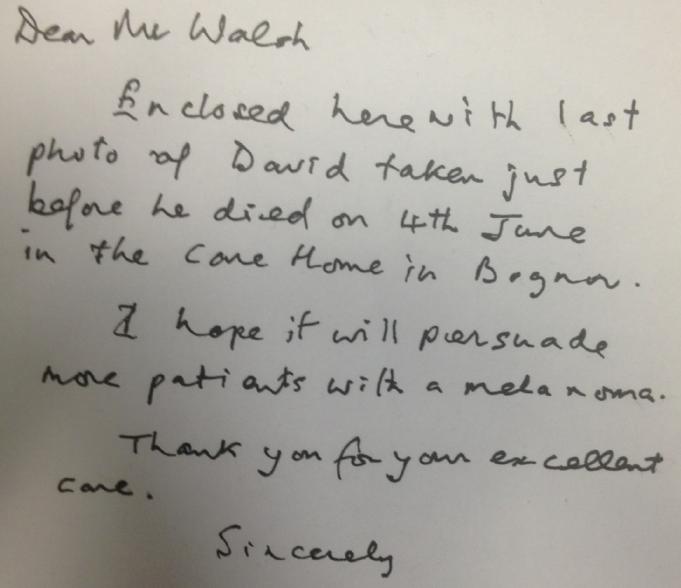 Dear Mr Walsh
Enclosed herewith last
photo of David taken just
before he died on 4th June
in the Care Home in Bognor.
I hope it will persuade
more patients with a melanoma.
Thank you for your excellent
care.
Sincerely